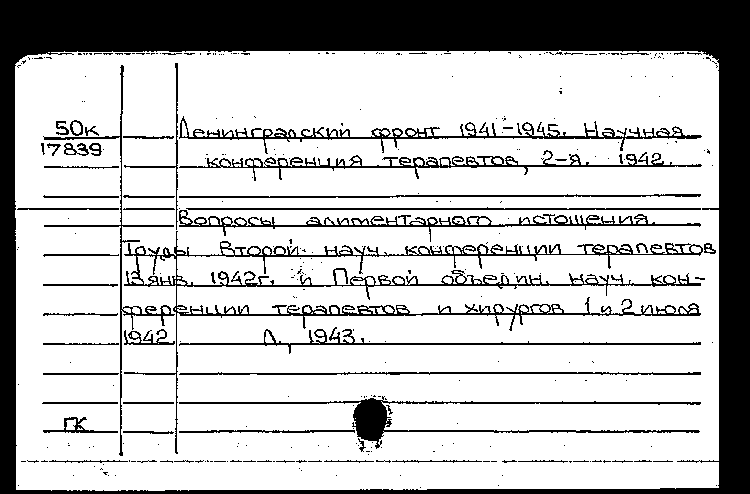 50к Ленинградский фронт 1941-1945. Научная
17839 конференция терапевтов, 2-я. 1942.
Вопросы алиментарного истощения.
Труды Второй науч. конференции терапевтов
13 янв. 1942г. и Первой объедин. науч. кон-
ференции терапевтов и хирургов 1 и 2 июля
1942 Л., 1943.
ГК